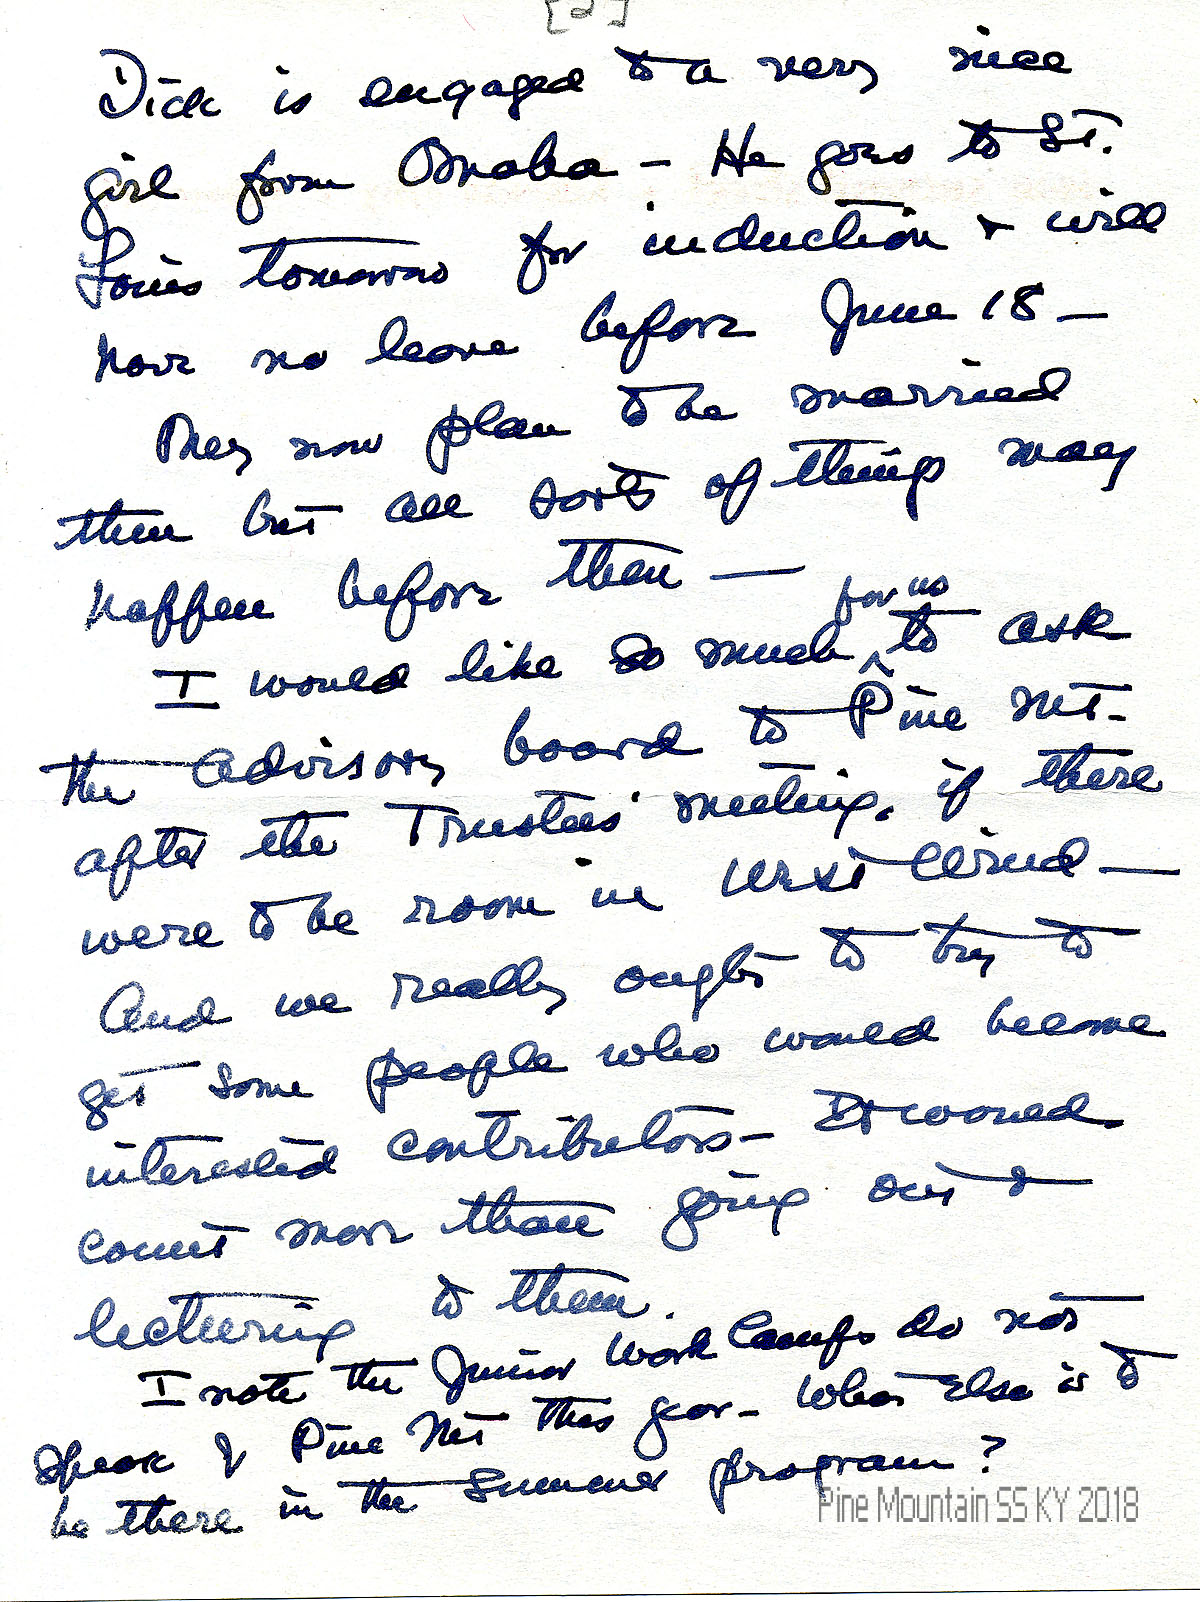 [2]
Dick is engaged to a very nice
girl from Omaha – He goes to St.
Louis tomorrow for induction & will
have no leave before June 18 –
They now plan to be married
then but all sorts of things may
happen before then —
for us
I would like so much ^ to ask
the advisory board to Pine Mt.
after the Trustees' meeting, if there
were to be room in West Wind –
And we really ought to try to
get some people who would become
interested contributors – It would
count more than going out &
lecturing to them.
I note the Junior Work Camps do not
speak of Pine Mt this year – What else is to
be there in the summer program?
Pine Mountain SS KY 2018